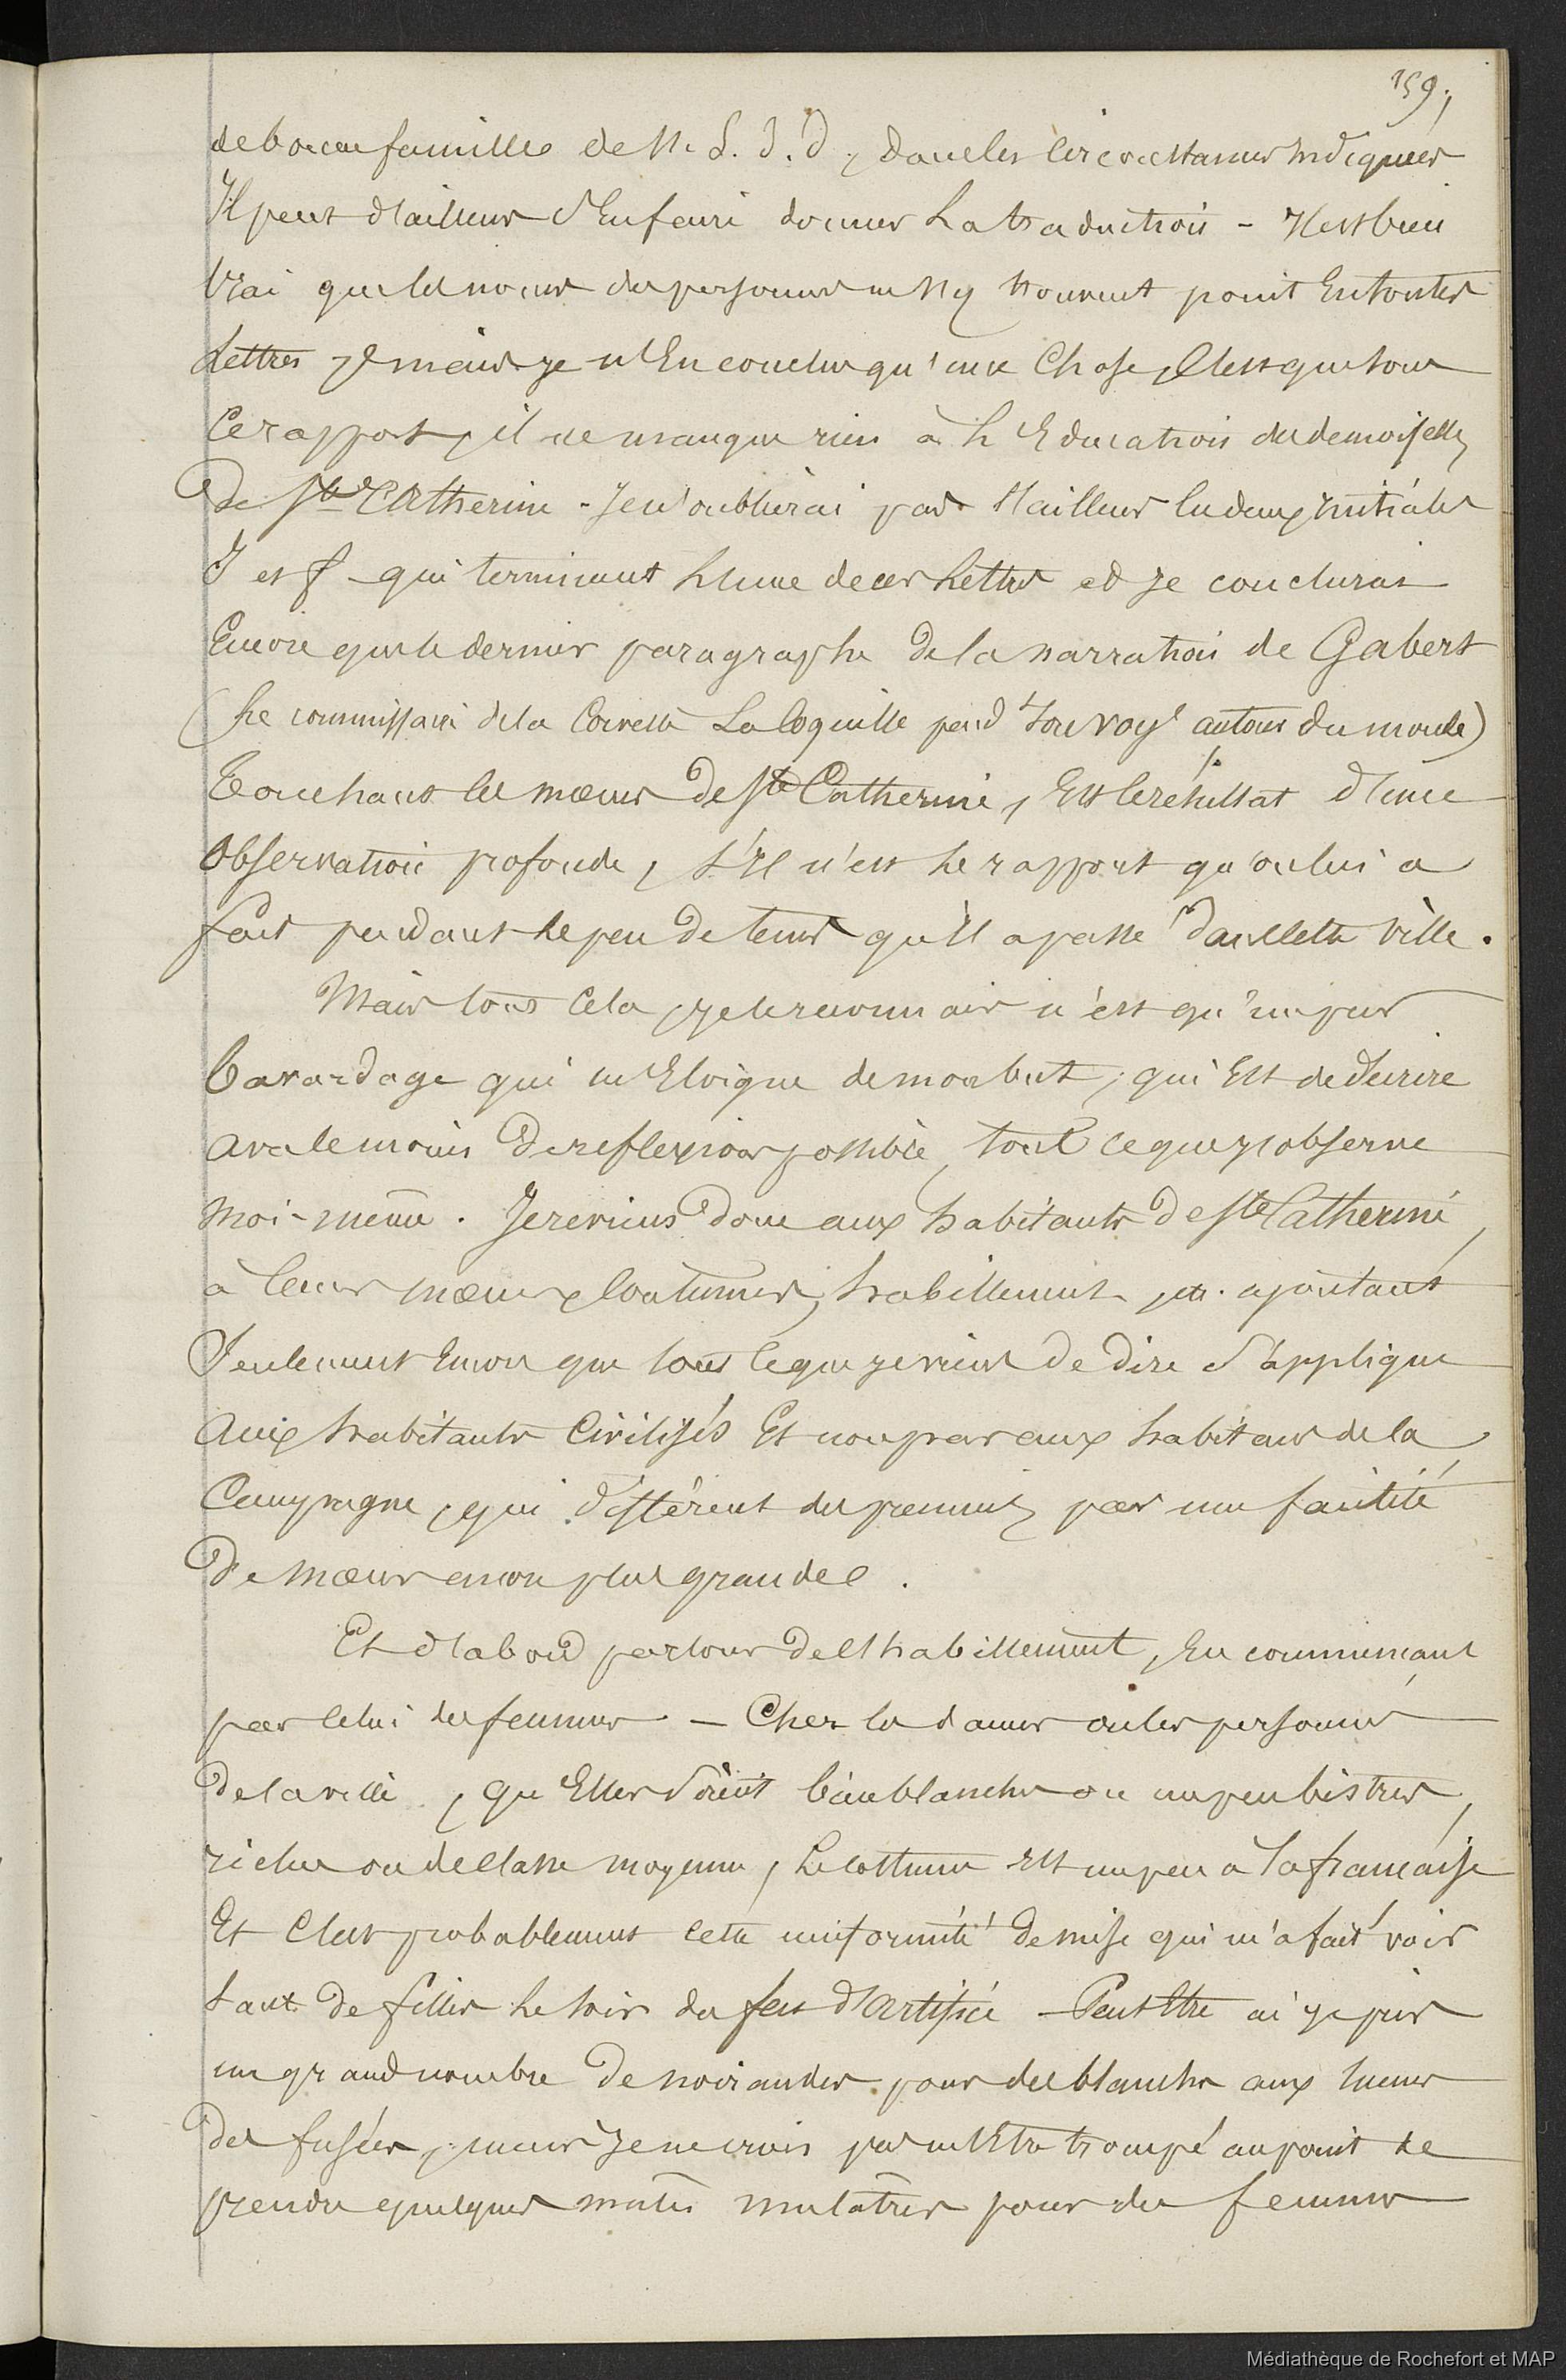 159.
de bonne famille de N. S. J. D, dans les circonstances indiquées
Il peut d'ailleurs s'En fournir donner La traduction - Il est bien
Vrai que les noms des personnes ne s'y trouvent point En toutes
Lettres, mais je n'En conclus qu'une Chose, C'est que sous
Ce rapport, il ne manque rien à L'Education des demoiselles
De Ste Catherine - Je n'oublierai pas d'ailleurs les deux initiales
J et f - qui terminent L'une de ces Lettres et je conclurai
Encore que le dernier paragraphe de la narration de Gabert
(Le commissaire de la Corvette La Coquille pend.t son voy.e autour du monde)
Touchant les mœurs de Ste Catherine, Est le résultat d'une
Observation profonde, s'Il n'est Le rapport qu'on lui a
fait pendant Le peu de tems qu'Il a passé dans Cette ville.
Mais tout Cela, je le reconnais n'est qu'un pur
bavardage qui m'Eloigne de mon but, qui Est de décrire
avec le moins de reflexions possible, tout ce que j'observe
moi-même. Je reviens donc aux habitants de Ste Catherine,
à leurs mœurs, Coutumes, habillement, etc. ajoutant
Seulement Encore que tout Ce que je viens de dire s'applique
Aux habitants Civilisés Et non pas aux habitans de la
Campagne, qui diffèrent des premiers par une facilité
De Mœurs encore plus grande.
Et d'abord parlons de l'habillement, En commençant
par Celui des femmes - Chez les dames ou les personnes
de la ville, qu'Elles soient bien blanches ou un peu bistres,
riches ou de classe moyenne, Le costume Est un peu à la française
Et C'est probablement cette uniformité de mise qui m'a fait voir
tant de filles Le soir du feu d'Artifice - Peut Etre ai je pris
un grand nombre de noiraudes pour des blanches aux lueurs
des fusées, mais Je ne crois pas m'Etre trompé au point de
prendre quelques mulâtres pour des femmes